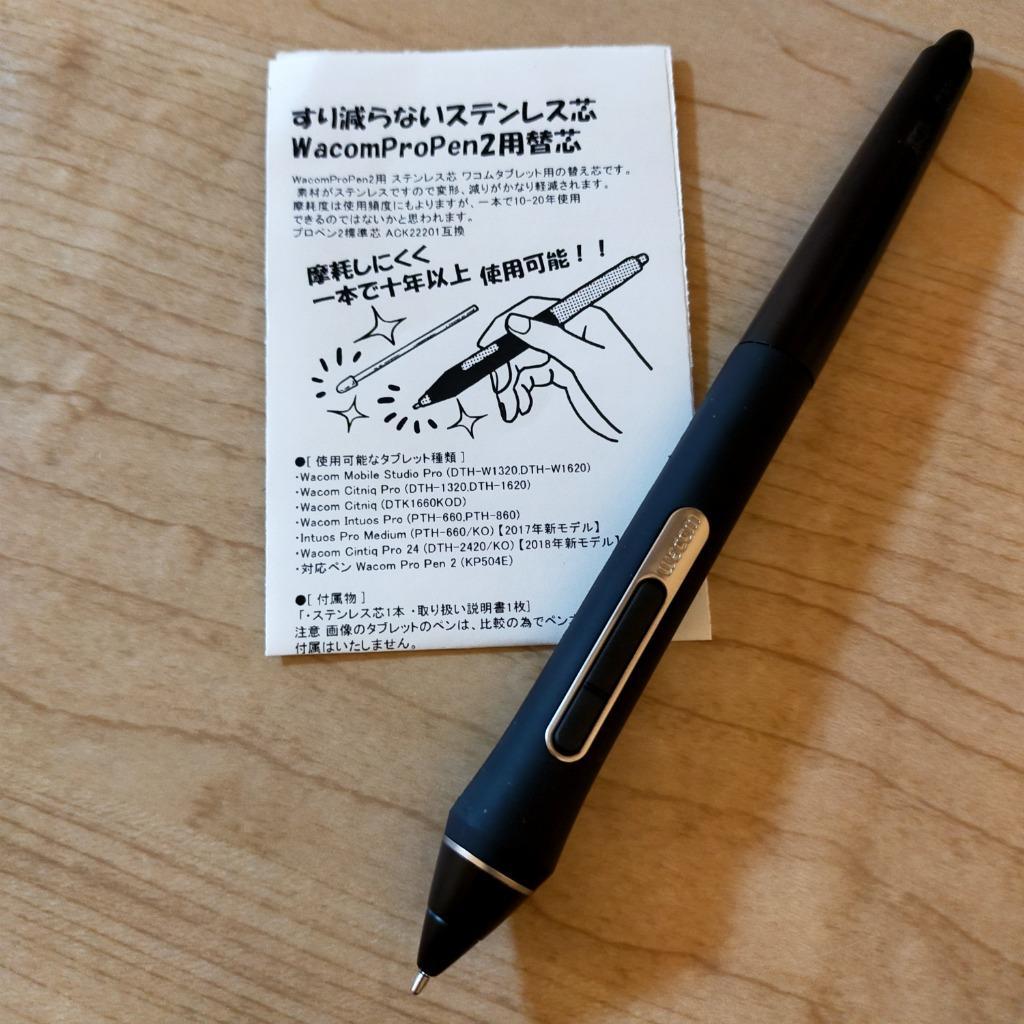 すり減らないステンレス芯
WacomProPen2用替芯
WacomProPen2用 ステンレス芯 ワコムタブレット用の替え芯です。
素材がステンレスですので変形、減りがかなり軽減されます。
摩耗度は使用頻度にもよりますが、一本で10-20年使用
できるのではないかと思われます。
プロペン2標準芯 ACK22201互換
摩耗しにくく
一本で十年以上 使用可能！！
●[ 使用可能なタブレット種類 ]
・Wacom Mobile Studio Pro (DTH-W1320,DTH-W1620)
・Wacom Citniq Pro (DTH-1320,DTH-1620)
・Wacom Citniq (DTK1660KOD)
・Wacom Intuos Pro (PTH-660,PTH-860)
・Intuos Pro Medium (PTH-660/KO)【2017年新モデル】
・Wacom Cintiq Pro 24 (DTH-2420/KO)【2018年新モデル】
・対応ペン Wacom Pro Pen 2 (KP504E)
●[ 付属物 ]
「・ステンレス芯1本 ・取り扱い説明書1枚]
注意 画像のタブレットのペンは、比較の為でペン
付属はいたしません。
wacom